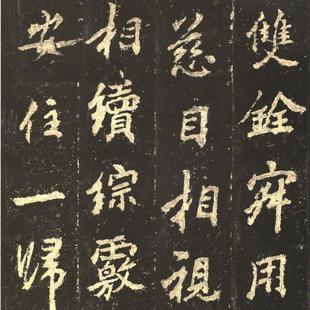 雙銓用
慈目相視
相續綜覈
安住一歸